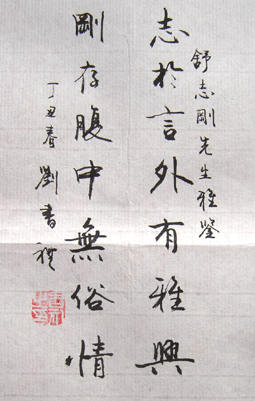 舒志剛先生雅鑒
志於言外有雅興
剛存腹中無俗情
丁丑春劉書禮